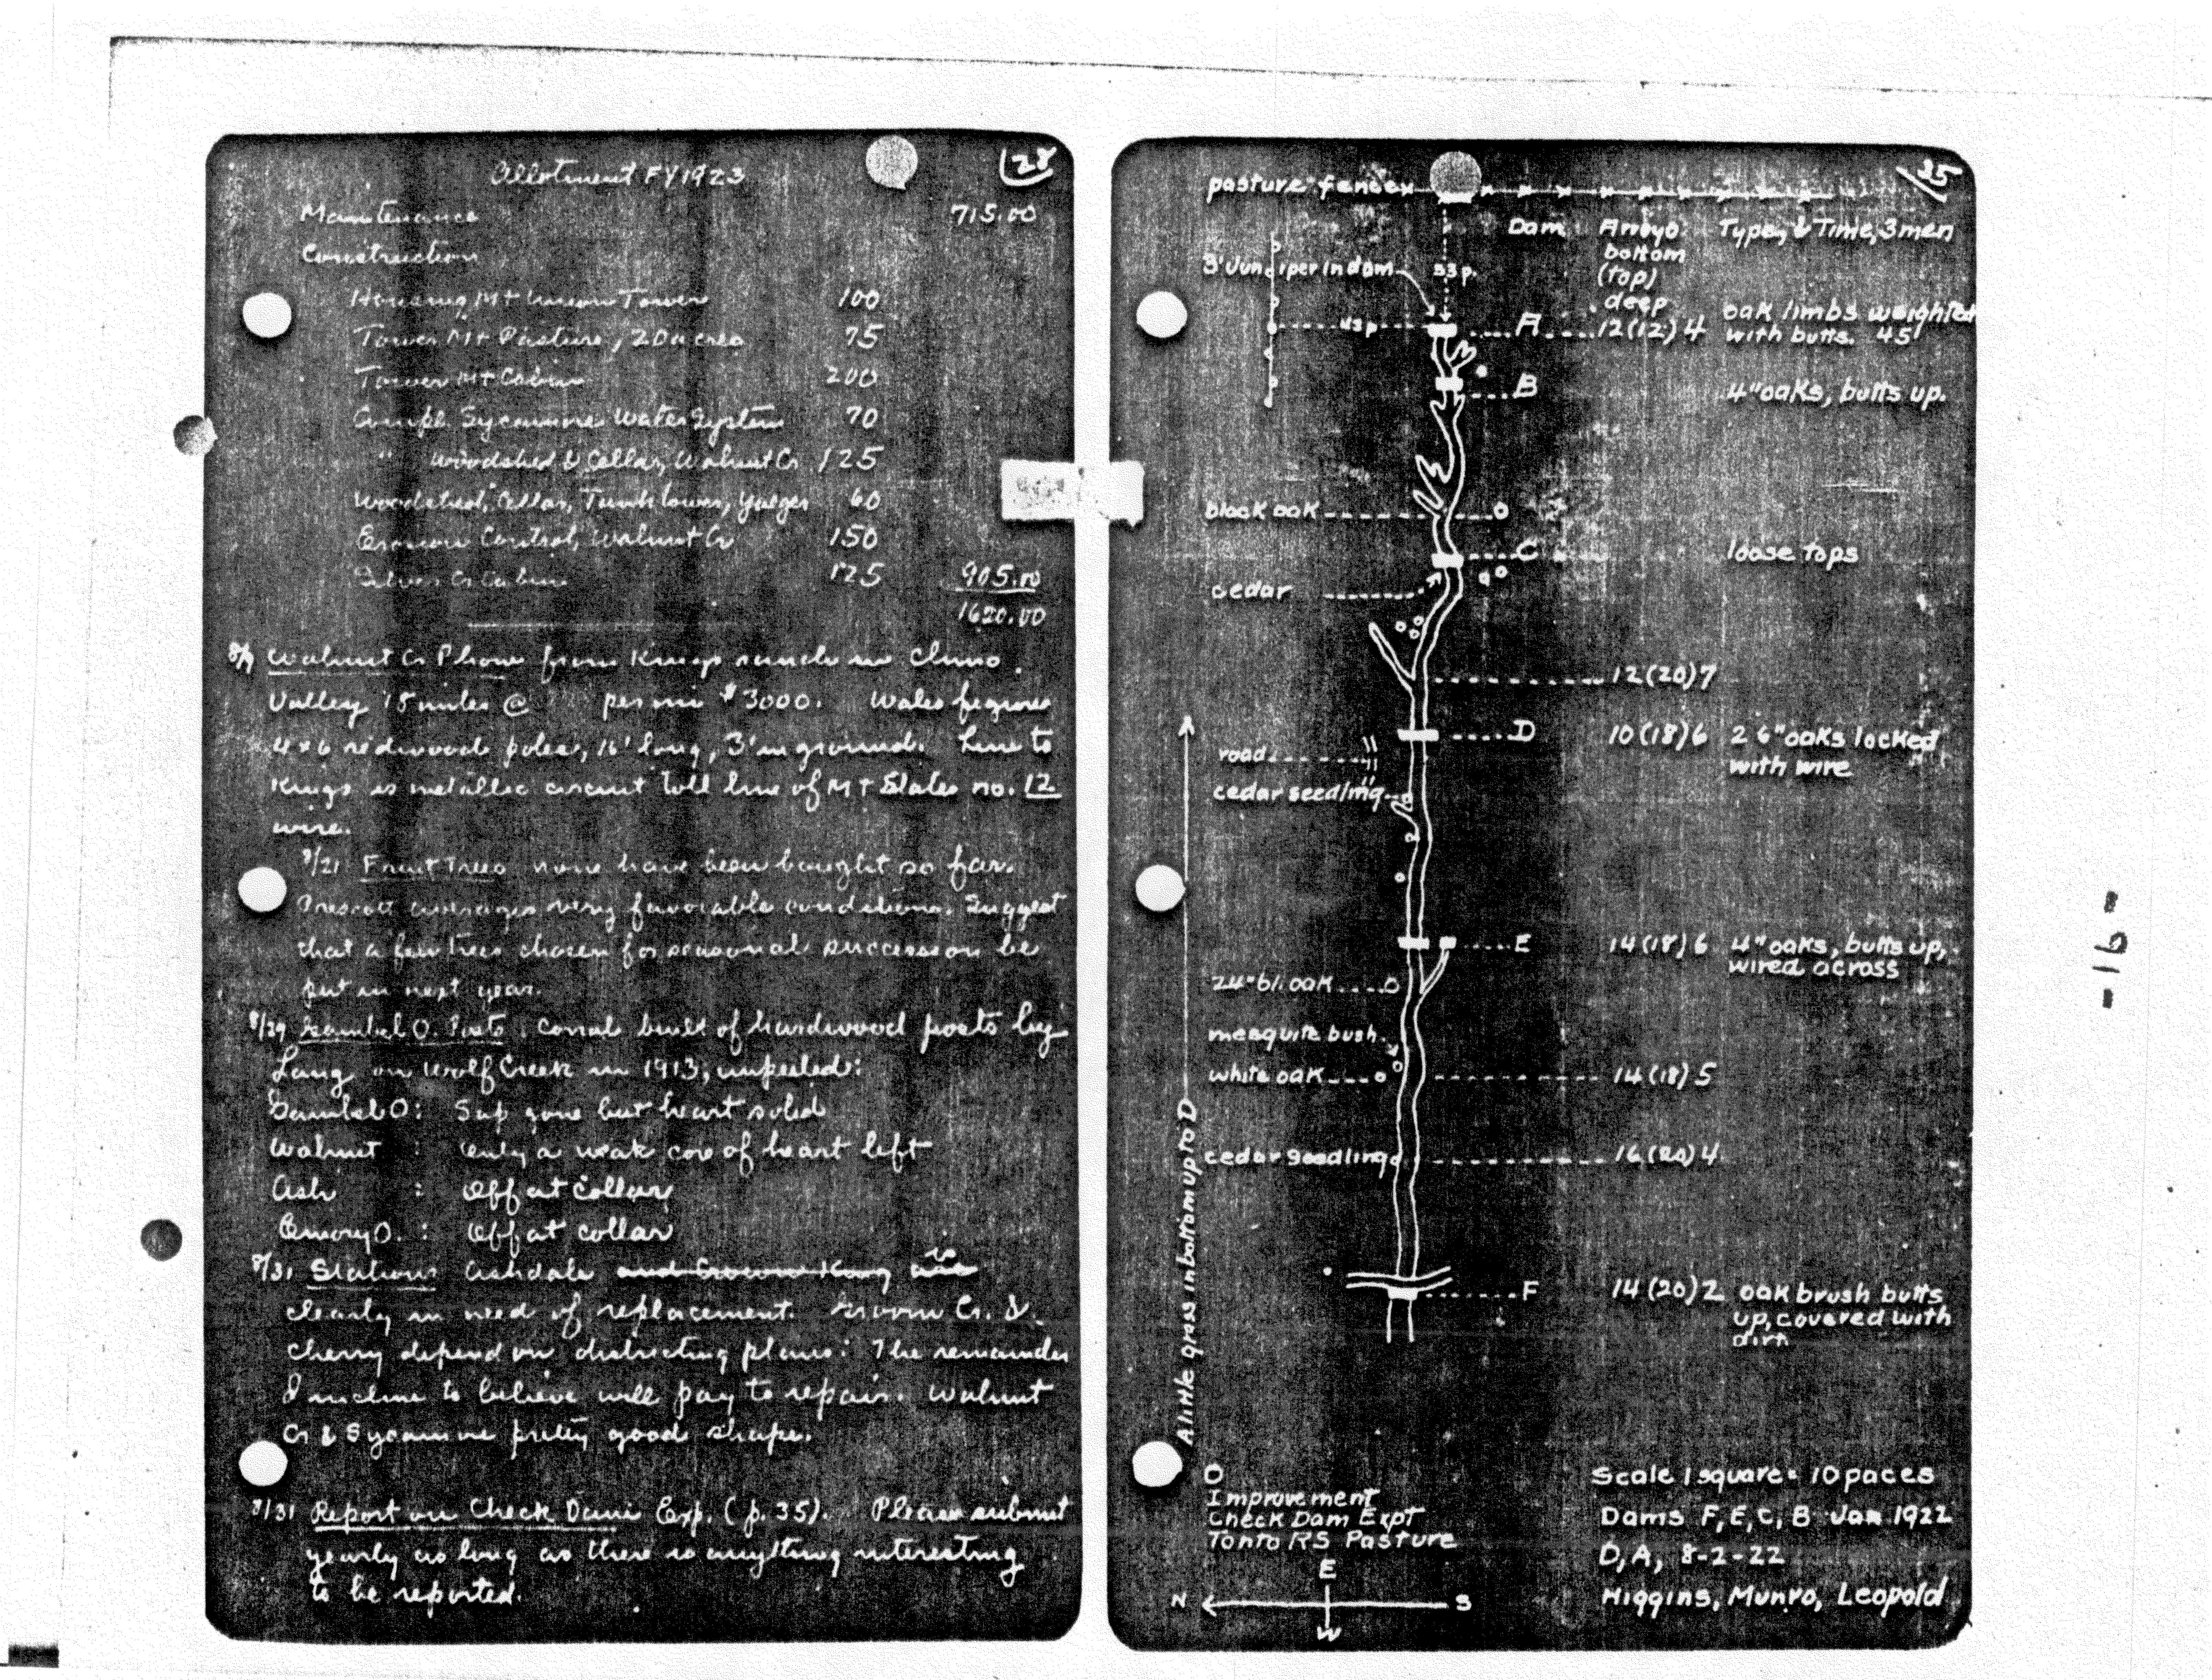 Allotment FY1923
28
Maintenance 715.00
Construction
Housing Mt Union Tower 100
Tower Mt Pasture, 20 acres 75
Tower Mt Cabin 200
Compl. Sycamore Water System 70
" Woodshed & Cellar, Walnut Cr 125
Woodshed, Cellar, Tower, Yaeger 60
Erosion Control, Walnut Cr 150
Silver Cr Cabin 125 905.00
1620.00
Walnut Cr Phone from Kings ranch in Chino
Valley 15 miles @ per mi $3000. Wales figures
4x6 redwood poles, 16' long, 3' in ground. Line to
Kings is metallic circuit toll line of Mt States no. 12
wire.
8/21 Fruit Trees none have been bought so far.
Prescott averages very favorable conditions. Suggest
that a few trees chosen for seasonal succession be
put in next year.
8/29 Gambel O. Posts. Corral built of hardwood posts by
Lang on Wolf Creek in 1913, unpeeled:
Gambel O: Sap gone but heart solid
Walnut : Only a weak core of heart left
Ash : Off at collar
Emory O. : Off at collar
8/31 Stations Ashdale and Crown King are is
clearly in need of replacement. Groom Cr. &
Cherry depend on districting plans. The remainder
I incline to believe will pay to repair. Walnut
Cr & Sycamore pretty good shape.
8/31 Report on Check Dam Exp. (p. 35). Please submit
yearly as long as there is anything interesting
to be reported.
35
pasture fence
Dam Arroyo: Type, & Time, 3 men
bottom
(top)
deep
3' Juniper in dam 33 p.
43 p A 12(12)4 oak limbs weighted
with butts. 45'
B 4" oaks, butts up.
black oak
C loose tops
cedar
12(20)7
D 10(18)6 2 6" oaks locked
with wire
road
cedar seedling
E 14(18)6 4" oaks, butts up,
wired across
24" bl. oak
mesquite bush
white oak 14(18)5
cedar seedling 16(20)4
F 14(20)2 oak brush butts
up, covered with
dirt
A little grass in bottom up to D
O
Improvement
Check Dam Expt
Tonto RS Pasture
E
N S
W
Scale 1 square = 10 paces
Dams F, E, C, B Jan 1922
D, A, 8-2-22
Higgins, Munro, Leopold
-16-